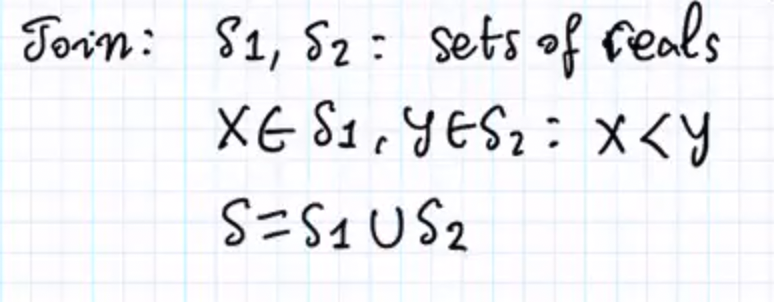 Join: S1, S2: sets of reals
x∈S1, y∈S2: x<y
S=S1∪S2